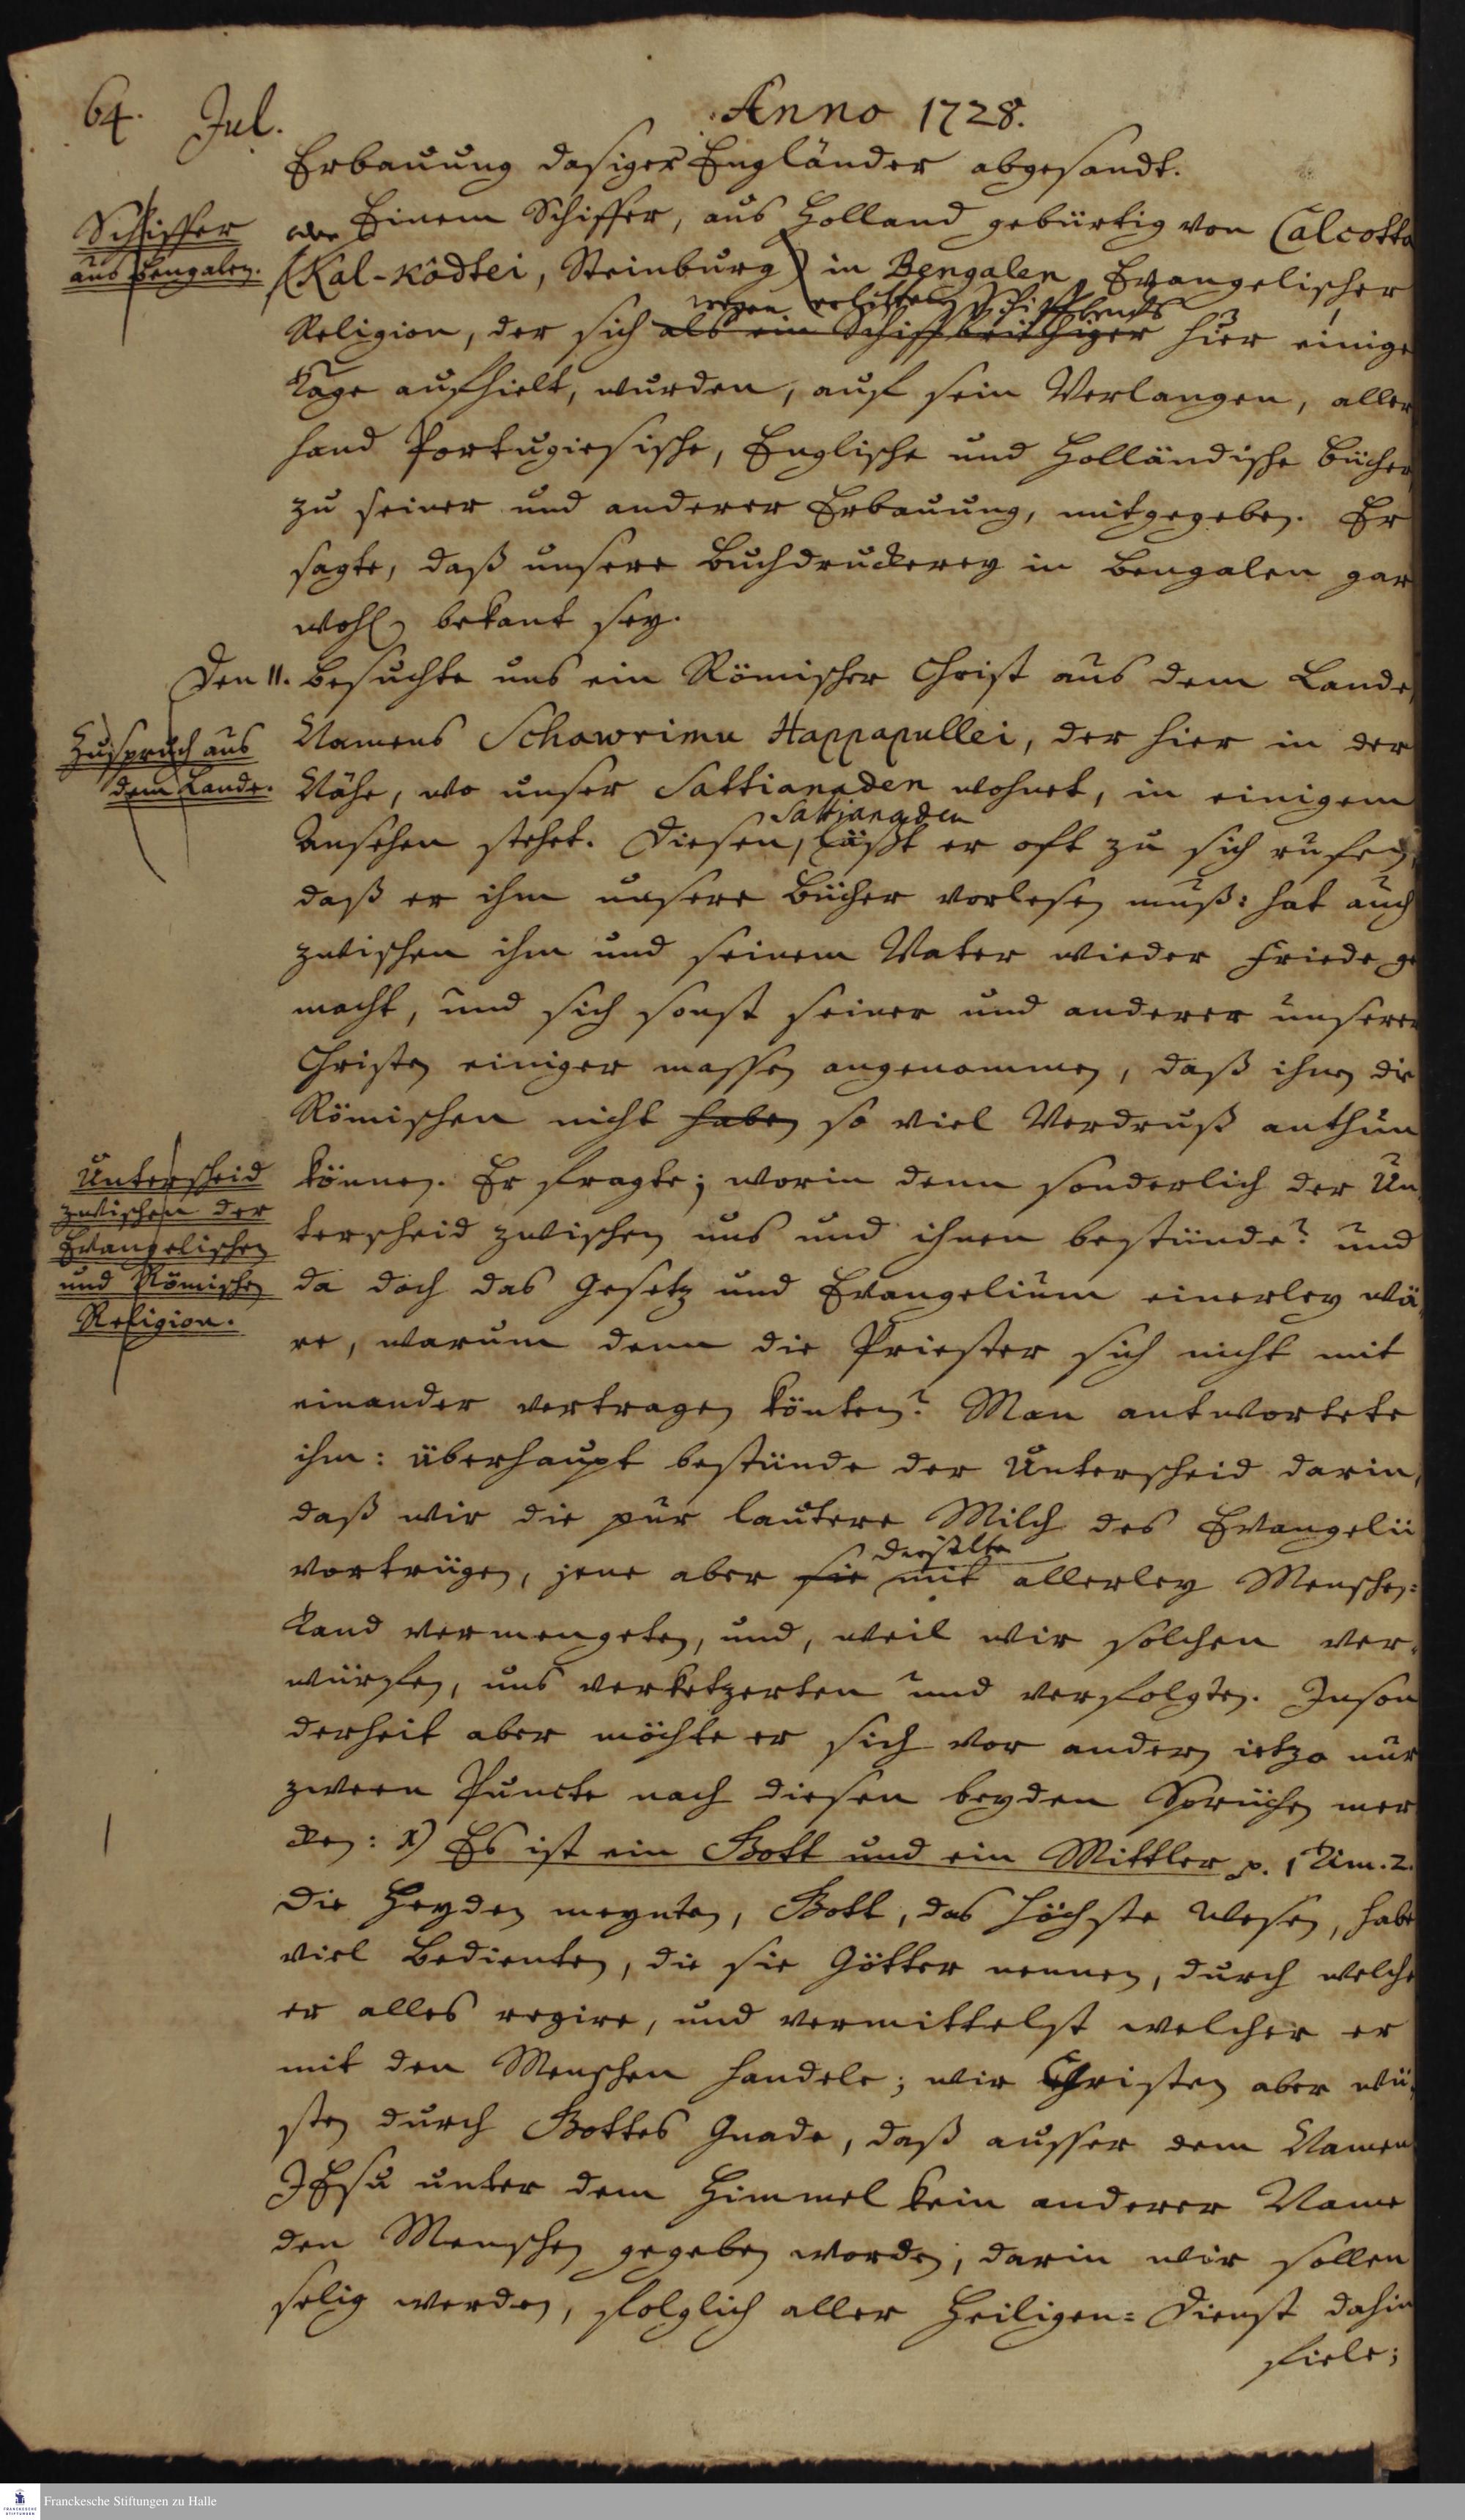 64. Jul. Anno 1728.
Erbauung dasiger Engländer abgesandt.
Schiffer
aus Bengalen.
Einem Schiffer, aus Holland gebürtig von Calcotta
(Kal-kôdtei, Steinburg) in Bengalen, Evangelischer
wegen erlittenen Schiffbruchs
Religion, der sich als ein Schiffbrüchiger hier einige
Tage aufhielt, wurden, auf sein Verlangen, aller
hand Portugiesische, Englische und Holländische Bücher
zu seiner und anderer Erbauung, mitgegeben. Er
sagte, daß unsere Buchdruckerey in Bengalen gar
wohl bekant sey.
Den 11. besuchte uns ein Römischer Christ aus dem Lande,
Zuspruch aus
dem Lande.
Namens Schawrimu Happapullei, der hier in der
Nähe, wo unser Sattianaden wohnet, in einigem
Sattianaden
Ansehen stehet. Diesen, läßt er oft zu sich rufen,
daß er ihm unsere Bücher vorlesen muß: hat auch
zwischen ihm und seinem Vater wieder Friede ge
macht, und sich sonst seiner und anderer unserer
Christen einiger massen angenommen, daß ihnen die
Römischen nicht haben so viel Verdruß anthun
Unterscheid
zwischen der
Evangelischen
und Römischen
Religion.
können. Er fragte; worin denn sonderlich der Un
terscheid zwischen uns und ihnen bestünde? und
da doch das Gesetz und Evangelium einerley wä
re, warum denn die Priester sich nicht mit
einander vertragen könten? Man antwortete
ihm: überhaupt bestünde der Unterscheid darin,
daß wir die pur lautere Milch des Evangelii
dieselbe
vortrügen, jene aber sie mit allerley Menschen=
tand vermengeten, und, weil wir solchen ver-
würfen, uns verketzerten und verfolgten. Inson
derheit aber möchte er sich vor andern ietzo nur
zween Puncte nach diesen beyden Sprüchen mer
cken: 1) Es ist ein Gott und ein Mittler p. 1 Tim. 2.
Die Heyden meynten, Gott, das höchste Wesen, habe
viel Bedienten, die sie Götter nennen, durch welche
er alles regire, und vermittelst welcher er
mit den Menschen handele; wir Christen aber wü-
sten durch Gottes Gnade, daß ausser dem Namen
JEsu unter dem Himmel kein anderer Name
den Menschen gegeben worden, darin wir sollen
selig werden, folglich aller Heiligen=Dienst dahin
fiele;
Franckesche Stiftungen zu Halle